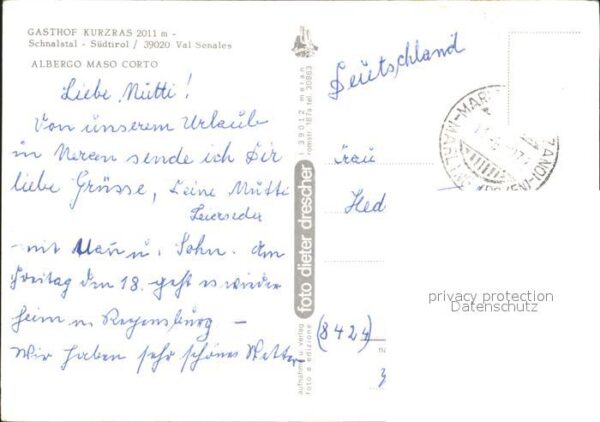 GASTHOF KURZRAS 2011 m -
Schnalstal - Südtirol / 39020 Val Senales
ALBERGO MASO CORTO
Liebe Mutti!
Von unserem Urlaub
in Meran sende ich Dir
liebe Grüsse, Deine Mutti
mit Mann u. Sohn. Am
Freitag den 18. geht es wieder
heim n. Regensburg -
Wir haben sehr schönes Wetter
foto dieter drescher
I 39012 meran
romstr. 187a tel. 30983
aufnahme u. verlag
foto e edizione
Deutschland
Frau
Hed
(8424)
privacy protection
Datenschutz